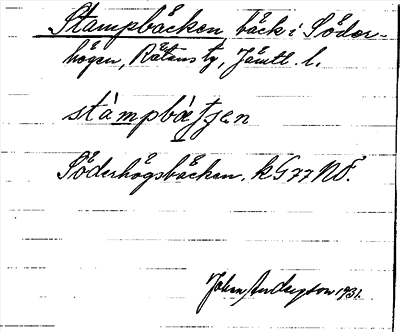 Stampbäcken bäck i Söder-
högen, Rätans tg, Jämtl. l.
stàmpbàʃʃen
Söderhögsbäcken. kG 77 NÖ.
Johan Anderson 1931.